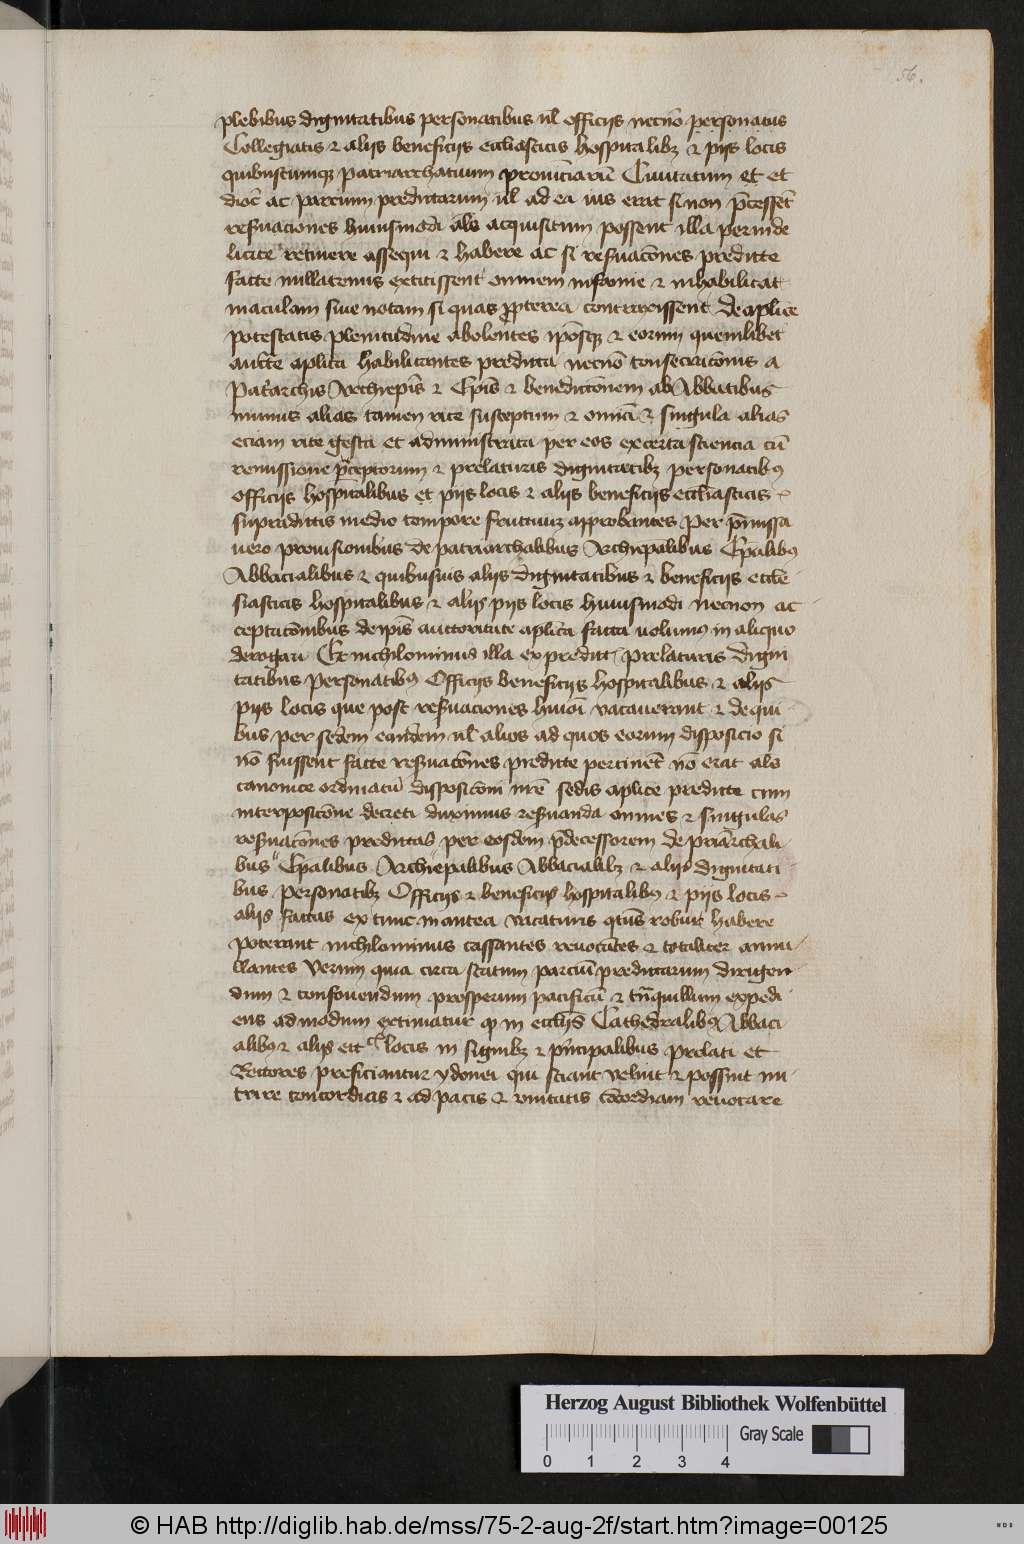 56.
plebibus dignitatibus personatibus ul̄ officijs necnō personatus
Collegiatis ⁊ alijs beneficijs eccliasticis hospitalibꝫ ⁊ pijs locis
quibuscumqꝫ patriarchatuum prouīciarū Ciuitatum et et
dioc̄ ac parcium predictarum ul̄ ad ea ius erat si non p̄cessset̄
resuaciones huiusmodi als̄ acquisitum possent illa perinde
licite retinere assequi ⁊ habere ac si resuacōnes predicte
facte nullatenus extitissent omnem infamie ⁊ inhabilitat
maculam siue notam si quas ꝓpterea contraxissent De aplice
potestatis plenitudine abolentes ip̄osqꝫ ⁊ eorum quemlibet
auct̄e aplica habilitantes predicta necnō consecracōnis a
Pat̄archis Archiep̄is ⁊ Ep̄is ⁊ benedictōnem ab Abbatibus
minus alias tamen rite susceptum ⁊ omīa ⁊ singula alias
eciam rite gesta et administrata per eos ex certa sciencia cū
remissione p̄ceptorum ⁊ prelaturis dignitatibꝫ personatibꝰ
officijs hospitalibus et pijs locis ⁊ alijs beneficijs eccliasticis
supradictis medio tempore fructuū approbantes Per p̄missa
uero prouisionibus de patriarchalibus Archiepalibus Ep̄alibꝰ
Abbacialibus ⁊ quibusuis alijs dignitatibus ⁊ beneficijs eccle
siasticis hospitalibus ⁊ alijs pijs locis huiusmodi necnon ac
ceptacōnibus de ip̄is auctoritate aplica facta uolumꝰ in aliquo
derogari Et nichilominus illa ex predict̄ prelaturis digni
tatibus personatibꝰ Officijs beneficijs hospitalibus ⁊ alijs
pijs locis que post resuaciones huiōi vacauerunt ⁊ de qui
bus per sedem eandem ul̄ alios ad quos eorum disposicio si
nō fuissent facte resuacōnes predicte pertinet̄ nō erat als̄
canonice ordinatū disposicōni nr̄e sedis aplice predicte cum
interposicōne decreti duximus resuanda omnes ⁊ singulas
resuacōnes predictas per eosdem p̄decessorem de pr̄iarchali
bus Ep̄alibus Archiepalibus Abbacialibꝫ ⁊ alijs dignitati
bus personatibꝫ Officijs ⁊ beneficijs hospitalibꝰ ⁊ pijs locis
alijs factas ex tunc in antea vacaturis qt̄us robur habere
poterant nichilominus cassantes reuocātes ⁊ totaliter annu
llantes Verum quia circa statum parciū predictarum dirigen
dum ⁊ confouendum prosperum pacificū ⁊ tn̄quillum expedi
ens ad modum extimatur ꝙ in eccl̄ijs Cathedralibꝰ Abbaci
alibꝰ ⁊ alijs locis in signibꝫ ⁊ p̄ncipalibus prelati et
Rectores preficiantur ydonei qui sciant velint ⁊ possint nu
trire concordias ⁊ ad pacis ⁊ vnitatis cōcordiam reuocare
Herzog August Bibliothek Wolfenbüttel
Gray Scale
0 1 2 3 4
© HAB http://diglib.hab.de/mss/75-2-aug-2f/start.htm?image=00125